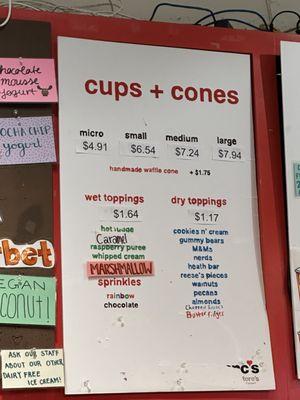 Chocolate
mousse
yogurt
MOCHA CHIP
yogurt
rbet
VEGAN
COCONUT!
ASK OUR STAFF
ABOUT OUR OTHER
DAIRY FREE
ICE CREAM!
cups + cones
micro small medium large
$4.91 $6.54 $7.24 $7.94
handmade waffle cone + $1.75
wet toppings
$1.64
hot fudge
Caramel
raspberry puree
whipped cream
MARSHMALLOW
sprinkles
rainbow
chocolate
dry toppings
$1.17
cookies n' cream
gummy bears
M&Ms
nerds
heath bar
reese's pieces
walnuts
pecans
almonds
Butterfinger
c's